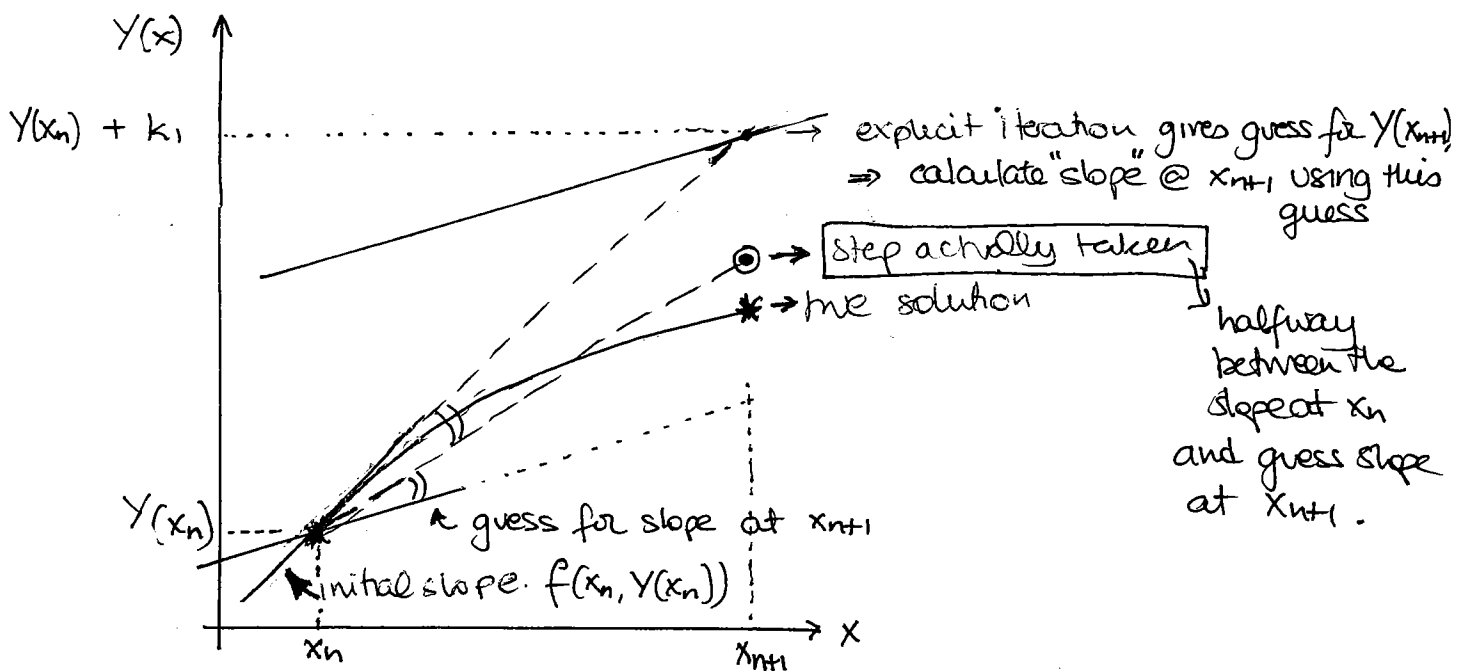 Y(x)
Y(xₙ) + k₁
→ explicit iteration gives guess for Y(xₙ₊₁)
⇒ calculate "slope" @ xₙ₊₁ using this
guess
→ step actually taken
→ true solution
halfway
between the
slope at xₙ
and guess slope
at xₙ₊₁.
Y(xₙ)
guess for slope at xₙ₊₁
initial slope. f(xₙ, Y(xₙ))
xₙ
xₙ₊₁
x